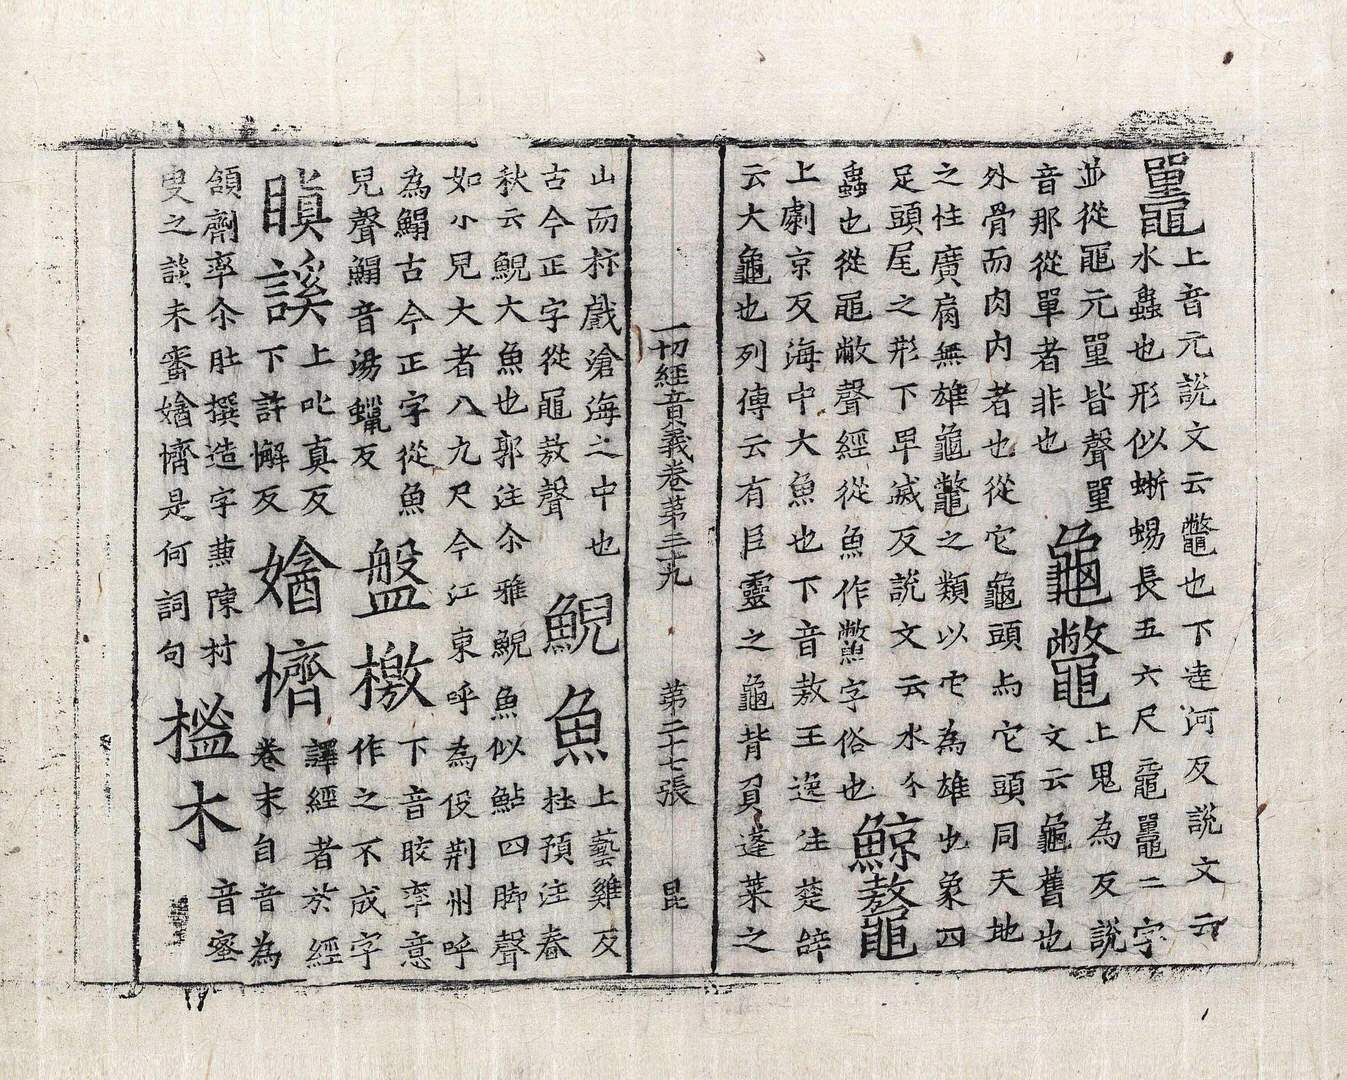 鼉上音元說文云鼈也下達河反說文云
水蟲也形似蜥蜴長五六尺黿鼉二字
並從黽元單皆聲單
音那從單者非也
龜鼈上鬼為反說
文云龜舊也
外骨而肉内者也從它龜頭与它頭同天地
之性廣肩無雄龜鼈之類以它為雄也象四
足頭尾之形下卑滅反說文云水介
蟲也從黽敝聲經從魚作鱉字俗也
鯨鼇
上劇京反海中大魚也下音敖王逸注楚辝
云大龜也列傳云有巨靈之龜背負蓬萊之
一切經音義卷第三十九 第二十七張 昆
山而抃戲滄海之中也
古今正字從黽敖聲
鯢魚上藝雞反
杜預注春
秋云鯢大魚也郭注尒雅鯢魚似鮎四脚聲
如小兒大者八九尺今江東呼為伇荆州呼
為鰨古今正字從魚
兒聲鰨音湯蠟反
盤檄下音晈率意
作之不成字
瞋謑上叱真反
下許懈反
嬆懠譯經者於經
卷末自音為
頷劑率尒肚撰造字兼陳村
叟之談未審嬆懠是何詞句
榓木
音蜜